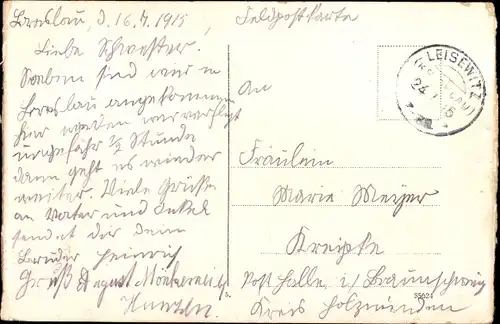 Breslau, d. 16.7.1915,
Feldpostkarte
Liebe Schwester.
Soeben sind wir in
Breslau angekommen
hier werden wir verpflegt
ungefähr 1/2 Stunde
dann geht es wieder
weiter. Viele Grüße
an Vater und Onkel
sendet dir dein
Bruder Heinrich
Gruß August
An
Fräulein
Marie Meyer
Kreipke
Post Halle i/ Braunschweig
Kreis Holzminden
KLEISEWITZ
24.7.15